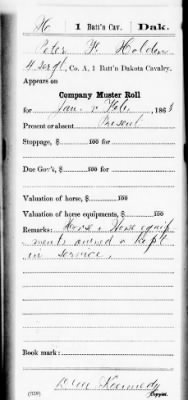 H | 1 Batt'n Cav. | Dak.
Peter F. Holden
4 Sergt, Co. A, 1 Batt'n Dakota Cavalry.
Appears on
Company Muster Roll
for Jan. & Feb., 1863
Present or absent Present
Stoppage, $ 100 for
Due Gov't, $ 100 for
Valuation of horse, $ 100
Valuation of horse equipments, $ 100
Remarks: Horse & Horse equip
ments owned & kept
in service.
Book mark:
Kennedy
Copyist.